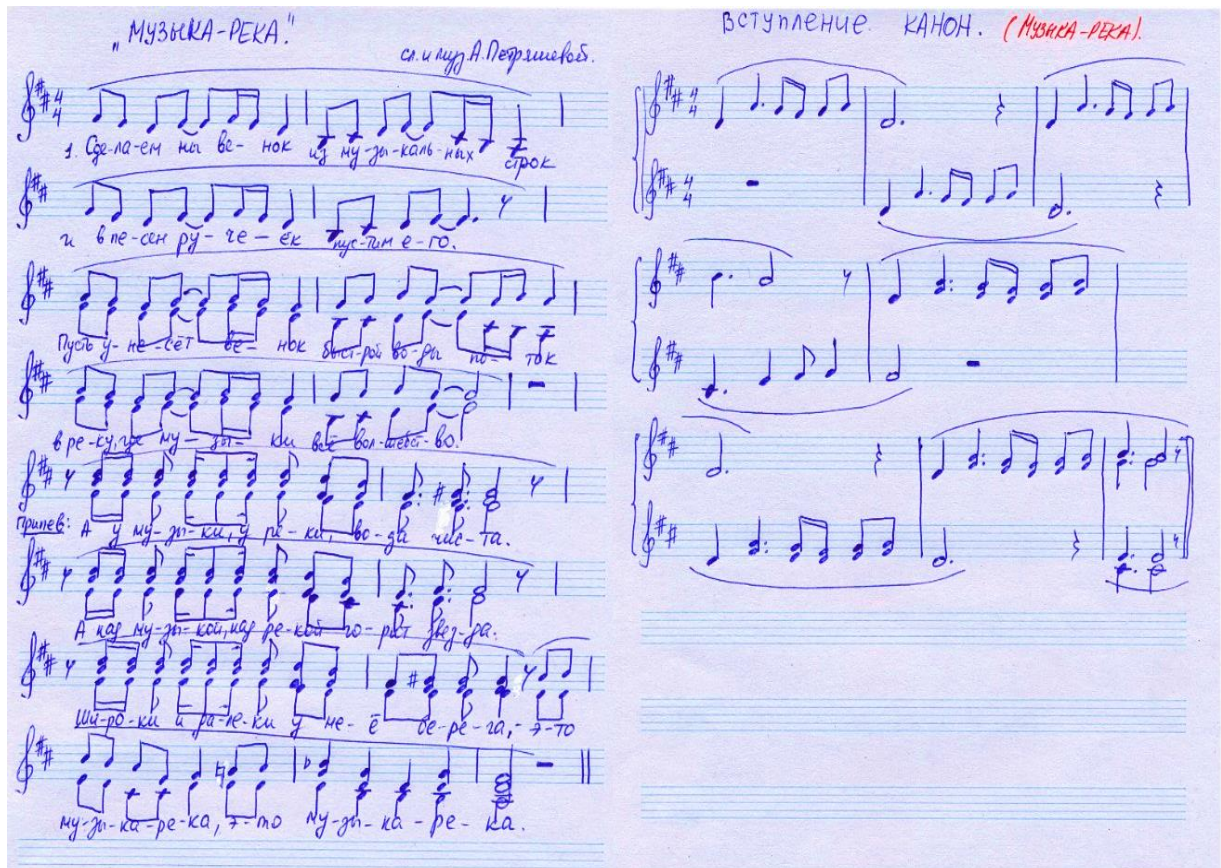 „МУЗЫКА-РЕКА."
сл. и муз. А. Петряшевой.
4
4
1. Сде-ла-ем мы ве-нок из му-зы-каль-ных строк
и в пе-сен ру-че-ёк пус-тим е-го.
Пусть у-не-сёт ве-нок быст-рой во-ды по-ток
в ре-ку, где му-зы-ки всё вол-шебст-во.
Припев: А у му-зы-ки, у ре-ки, во-да чис-та.
А над му-зы-кой, над ре-кой го-рит звез-да.
Ши-ро-ки и да-ле-ки у не-ё бе-ре-га,- э-то
му-зы-ка-ре-ка, э-то му-зы-ка-ре-ка.
ВСТУПЛЕНИЕ. КАНОН. (МУЗЫКА-РЕКА).
4
4
4
4